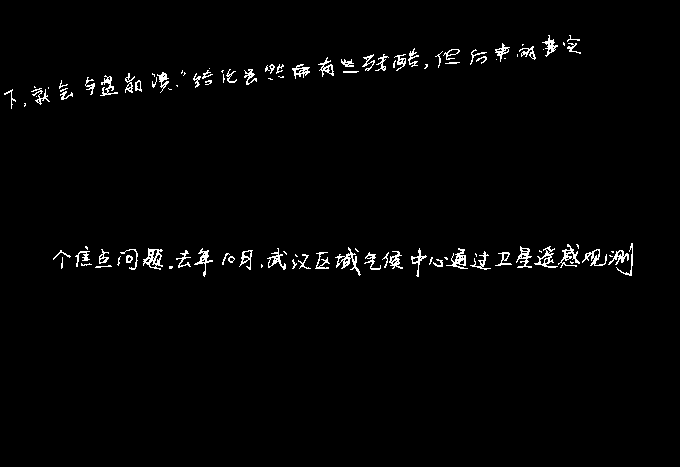 下,就会与盘崩溃."结论虽然带有些残酷,但后来的事实
个焦点问题.去年10月,武汉区域气候中心通过卫星遥感观测